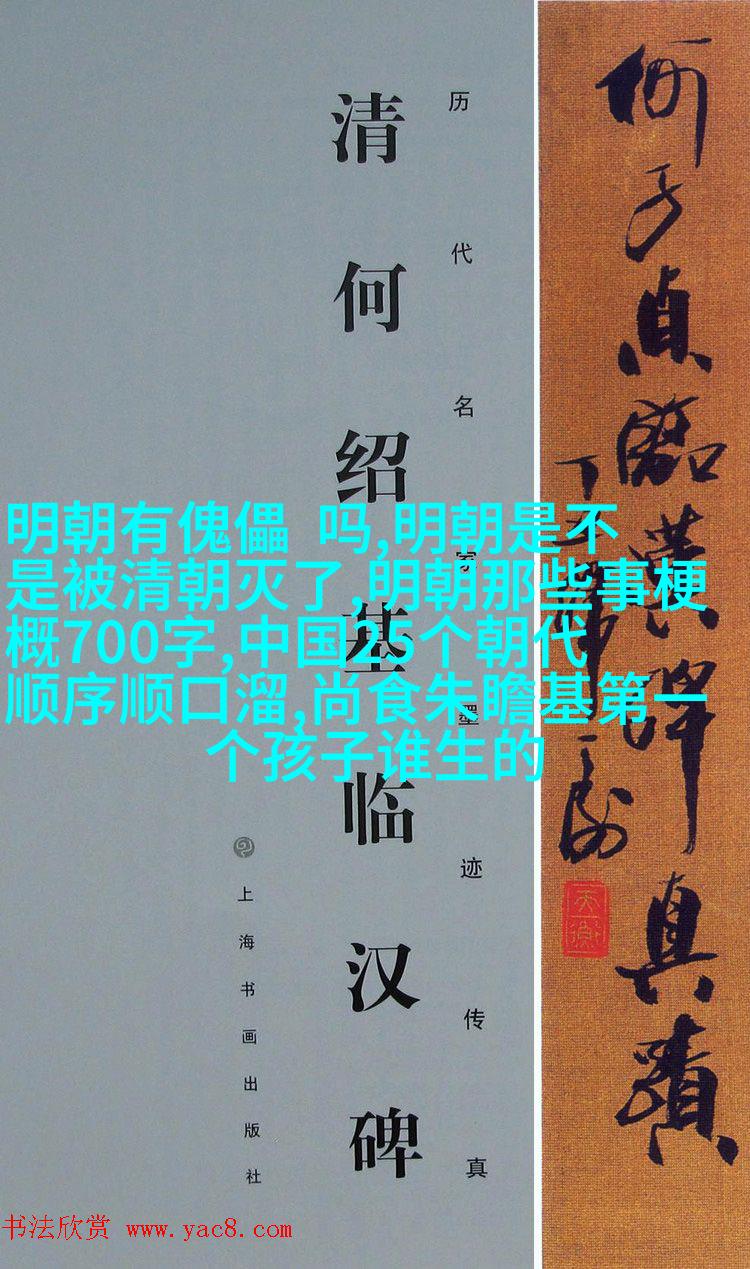 何子貞臨漢碑真蹟
天衡
历代名家墨迹传真
清何绍基临汉碑
上海书画出版社
明朝有傀儡 吗,明朝是不
是被清朝灭了,明朝那些事梗
概700字,中国25个朝代
顺序顺口溜,尚食朱瞻基第一
个孩子谁生的
书法欣赏 www.yac8.com